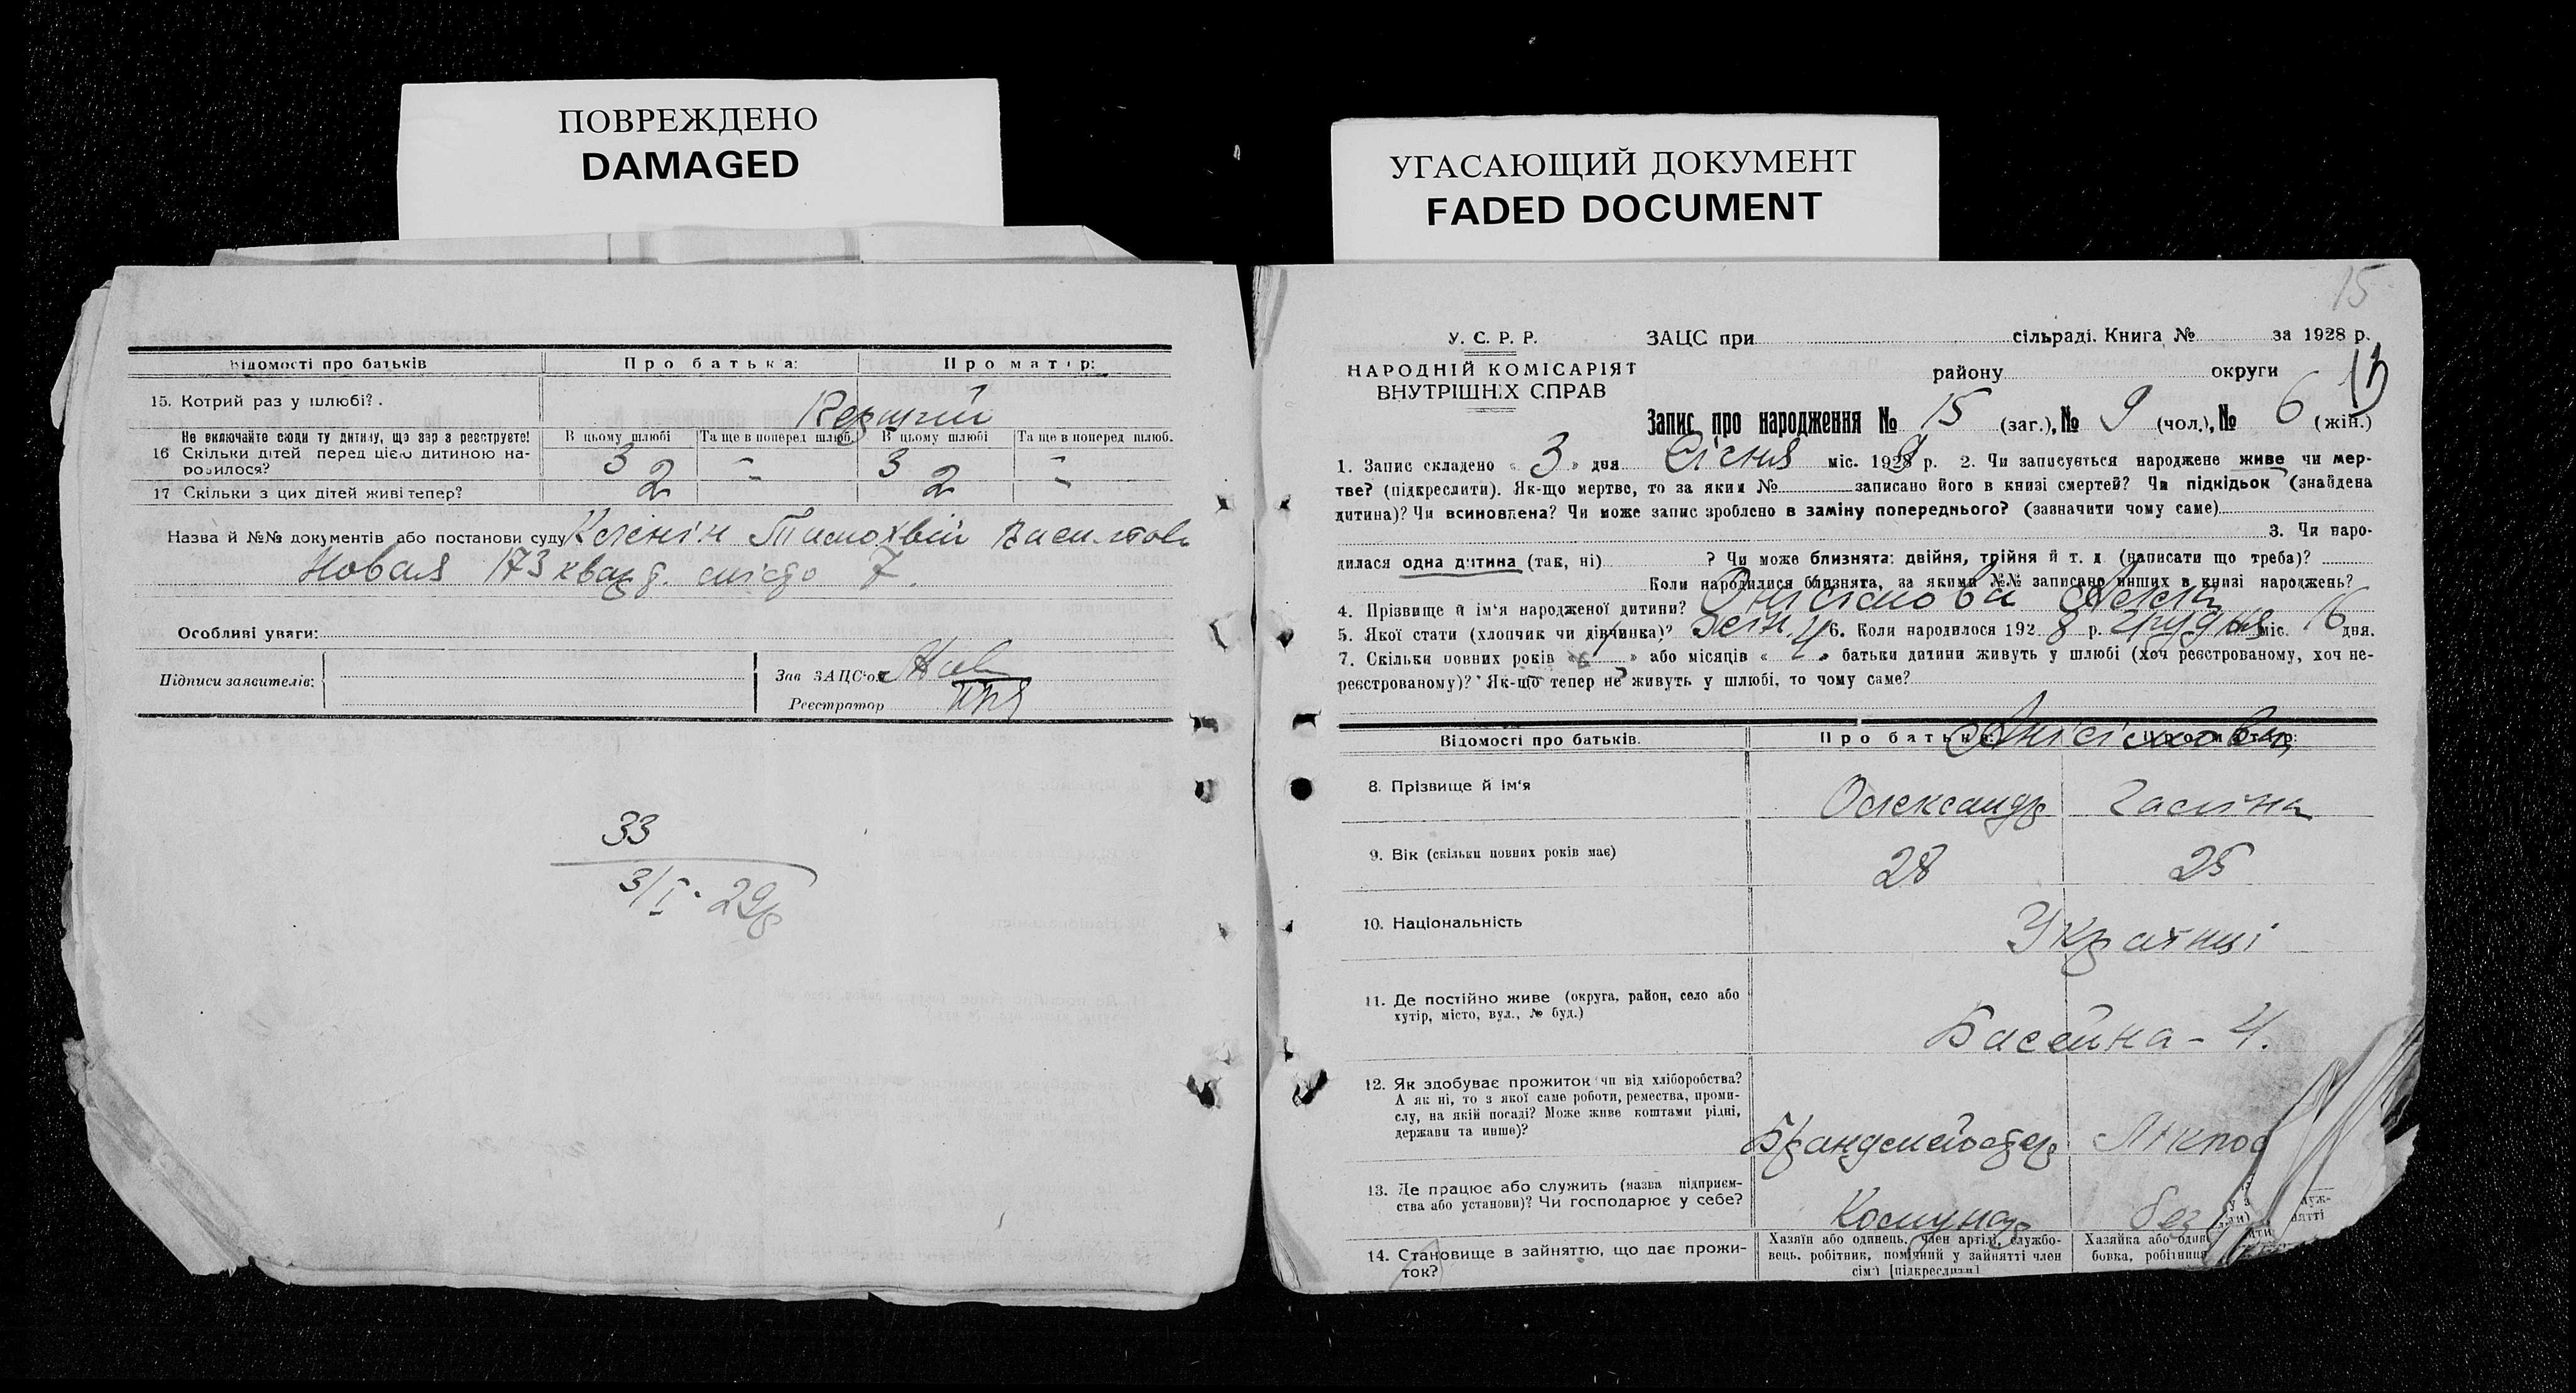 ПОВРЕЖДЕНО
DAMAGED
УГАСАЮЩИЙ ДОКУМЕНТ
FADED DOCUMENT
Відомості про батьків
Про батька:
Про матір:
15. Котрий раз у шлюбі?
Перший
Не включайте сюди ту дитину, що зараз реєструєте!
В цьому шлюбі
Та ще в поперед шлюб.
В цьому шлюбі
Та ще в поперед шлюб.
16 Скільки дітей перед цією дитиною на-
родилося?
3 2 - 3 2 -
17 Скільки з цих дітей живі тепер?
2 - 2 -
Назва й №№ документів або постанови суду
Новая 173 кварт. місто 7.
Особливі уваги:
Підписи заявителів:
Зав ЗАЦС'ом
Реєстратор
33
3/I-29р
15
У. С. Р. Р.
НАРОДНІЙ КОМІСАРІЯТ
ВНУТРІШНІХ СПРАВ
ЗАЦС при сільраді. Книга № за 1928 р.
району округи
13
Запис про народження № 15 (заг.), № 9 (чол.), № 6 (жін.)
1. Запис складено « 3 » дня Січня міс. 1929 р. 2. Чи записується народжене живе чи мер-
тве? (підкреслити). Як-що мертве, то за яким № записано його в книзі смертей? Чи підкідьок (знайдена
дитина)? Чи всиновлена? Чи може запис зроблено в заміну попереднього? (зазначити чому саме)
3. Чи наро-
дилася одна дитина (так, ні) ? Чи може близнята: двійня, трійня й т. д (написати що треба)?
Коли народилися близнята, за якими №№ записано инших в книзі народжень?
4. Прізвище й ім'я народженої дитини? Онісімова
5. Якої стати (хлопчик чи дівчинка)? 6. Коли народилося 1928 р. грудня міс. 16 дня.
7. Скільки повних років « » або місяців « » батьки дитини живуть у шлюбі (хоч реєстрованому, хоч не-
реєстрованому)? Як-що тепер не живуть у шлюбі, то чому саме?
Відомості про батьків.
Про батька:
Про матір:
Анісімови
8. Прізвище й ім'я
Олександр
Галина
9. Вік (скільки повних років має)
28
25
10. Національність
Українці
11. Де постійно живе (округа, район, село або
хутір, місто, вул., № буд.)
Басейна - 4.
12. Як здобуває прожиток чи від хліборобства?
А як ні, то з якої саме роботи, ремества, проми-
слу, на якій посаді? Може живе коштами рідні,
держави та инше)?
Брандмейстер
Лікпом
13. Де працює або служить (назва підприєм-
ства або установи)? Чи господарює у себе?
Комунар
без
14. Становище в зайняттю, що дає прожи-
ток?
Хазяїн або одинець, член артілі, службо-
вець, робітник, помічний у зайнятті член
сім'ї [підкреслити]
Хазяйка або один
бовка, робітниця